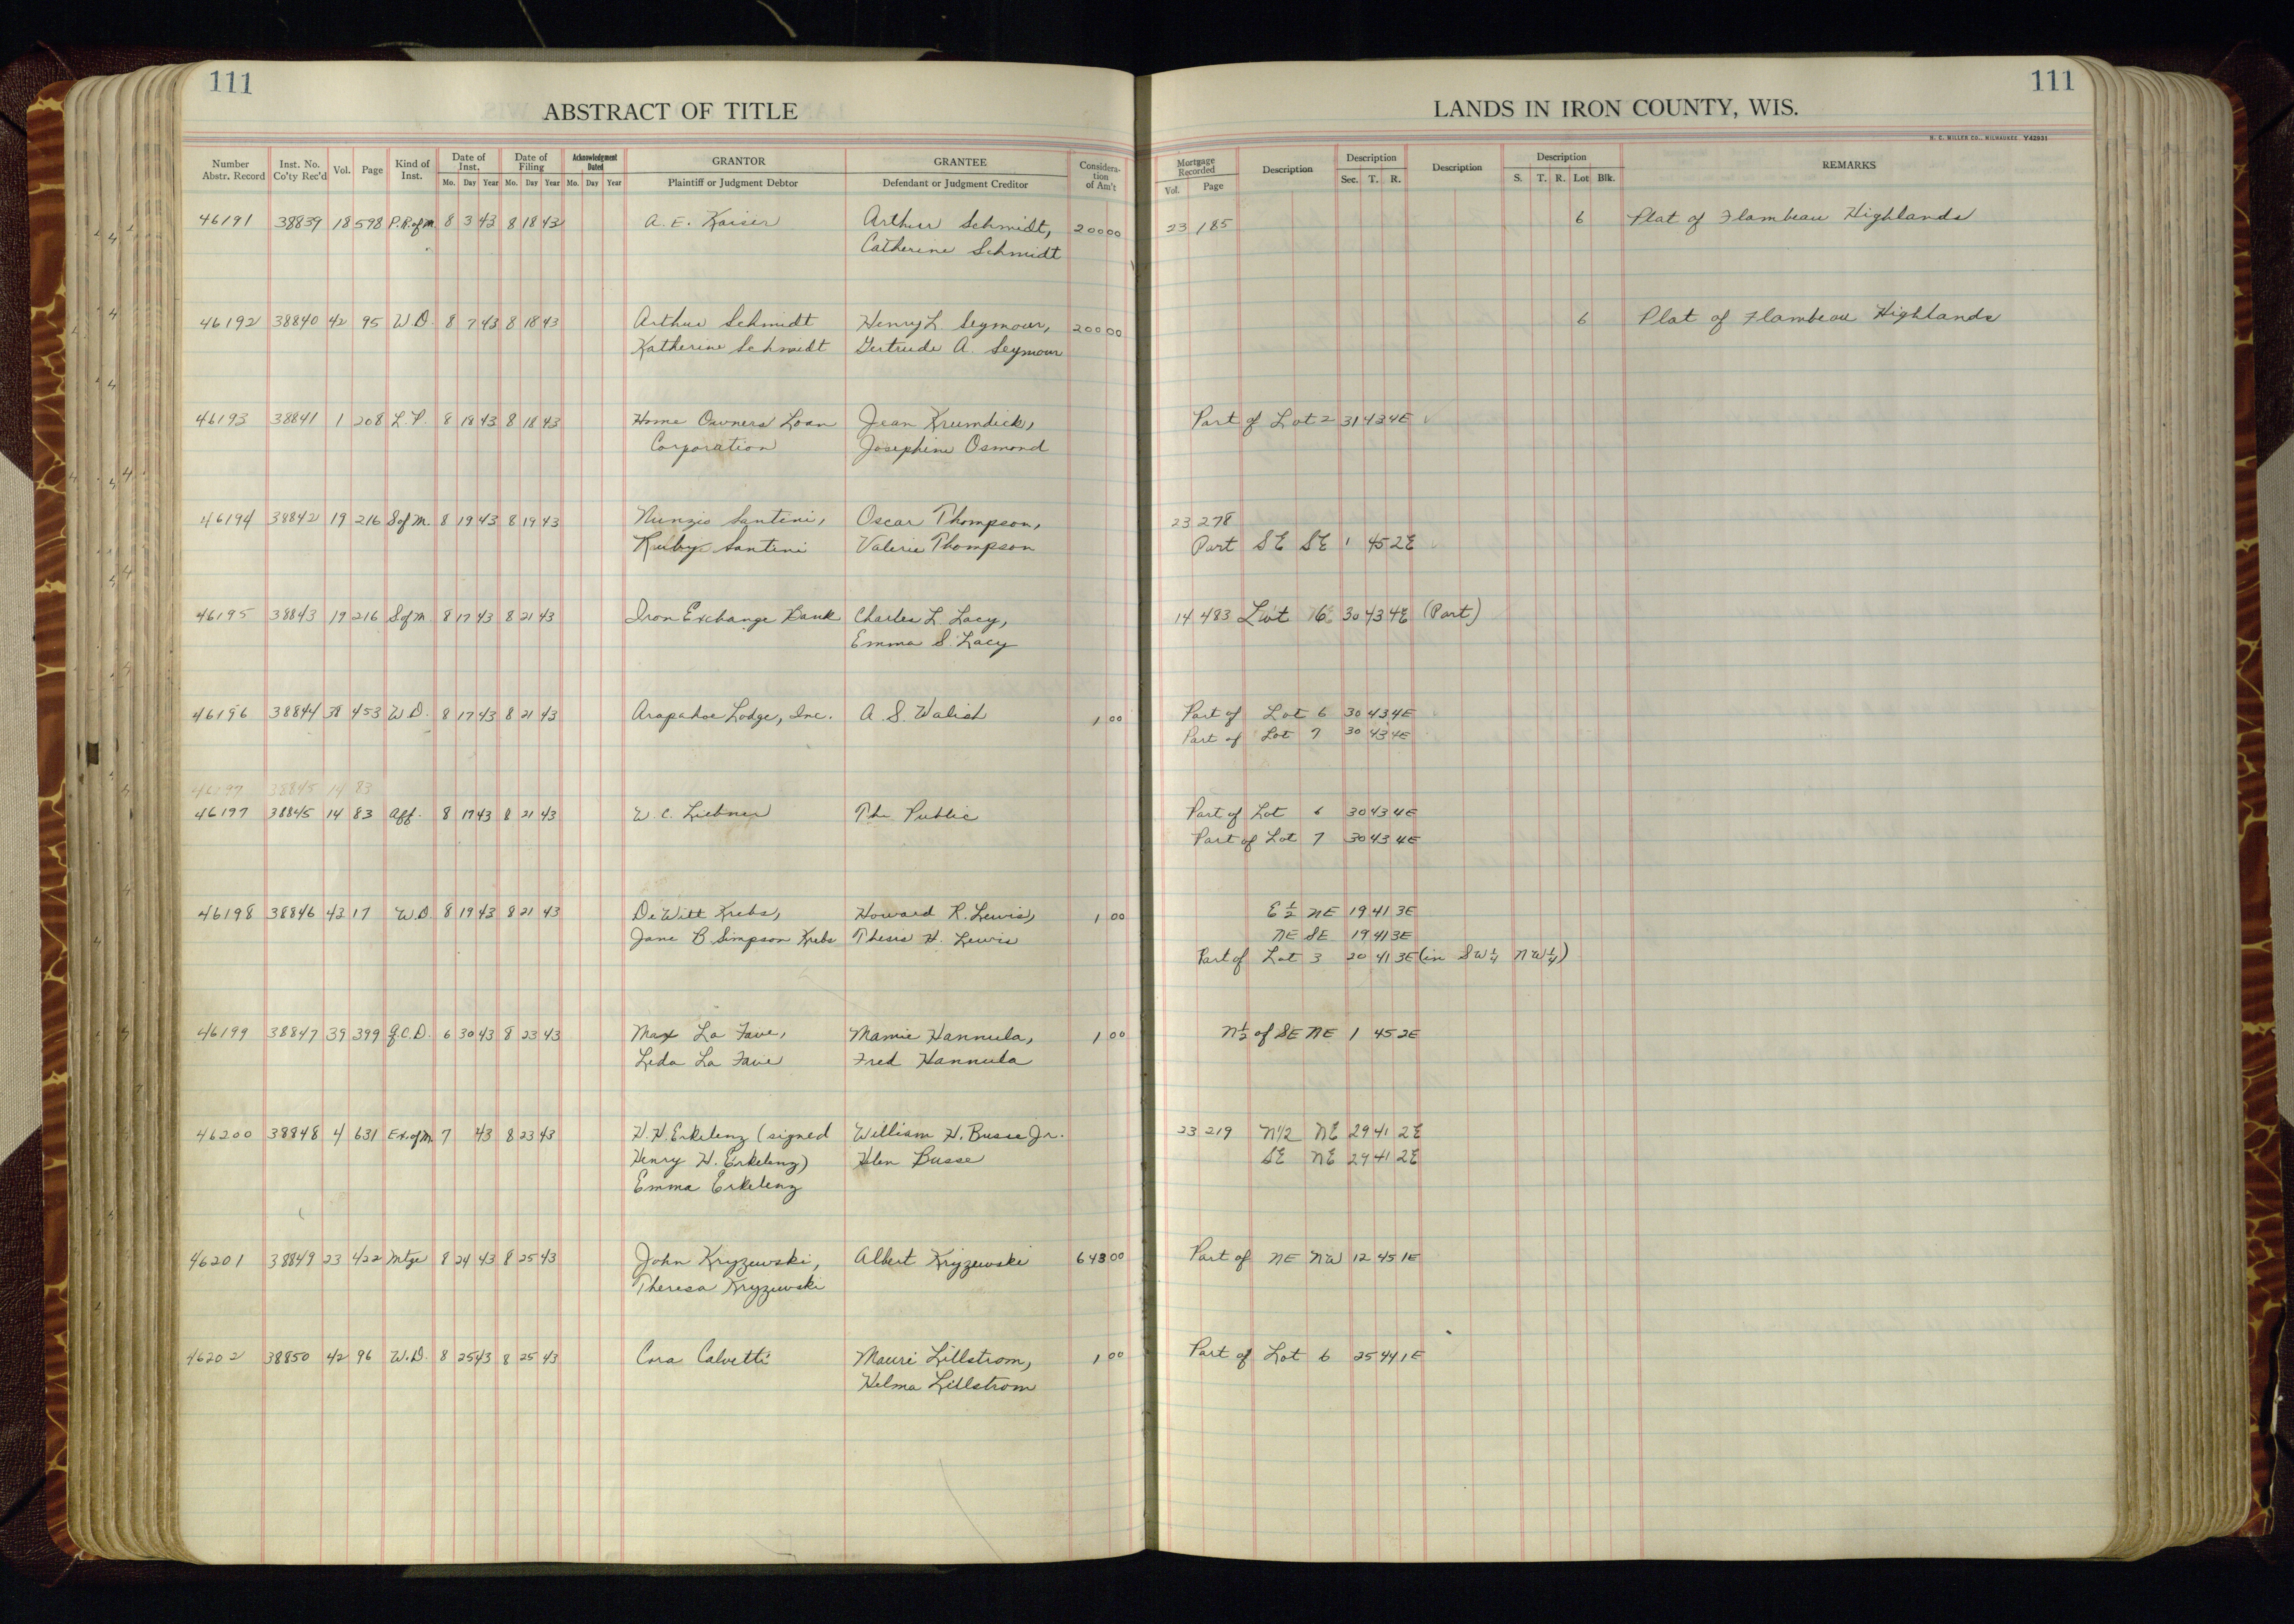 111
111
ABSTRACT OF TITLE
LANDS IN IRON COUNTY, WIS.
H. C. MILLER CO., MILWAUKEE Y42931
Number Abstr. Record Inst. No. Co'ty Rec'd Vol. Page Kind of Inst. Date of Inst. Mo. Day Year Date of Filing Mo. Day Year Acknowledgment Dated Mo. Day Year GRANTOR Plaintiff or Judgment Debtor GRANTEE Defendant or Judgment Creditor Considera-tion of Am't Mortgage Recorded Vol. Page Description Description Sec. T. R. Description Description S. T. R. Lot Blk. REMARKS
46191 38839 18 598 P.R.ofM 8 3 43 8 18 43 A. E. Kaiser Arthur Schmidt, 200 00 23 185 6 Plat of Flambeau Highlands
Catherine Schmidt
46192 38840 42 95 W D. 8 7 43 8 18 43 Arthur Schmidt Henry L. Seymour, 200 00 6 Plat of Flambeau Highlands
Katherine Schmidt Gertrude A. Seymour
46193 38841 1 208 L. P. 8 18 43 8 18 43 Home Owners Loan Jean Krumdick, Part of Lot 2 31 43 4E
Corporation Josephine Osmond
46194 38842 19 216 S of M. 8 19 43 8 19 43 Nunzio Santini, Oscar Thompson, 23 278
Ruby Santini Valerie Thompson Part SE SE 1 45 2E
46195 38843 19 216 S of M 8 17 43 8 21 43 Iron Exchange Bank Charles L. Lacy, 14 483 Lot 6 30 43 4E (Part)
Emma S. Lacy
46196 38844 38 453 W.D. 8 17 43 8 21 43 Arapahoe Lodge, Inc. A. S. Walish 1 00 Part of Lot 6 30 43 4E
Part of Lot 7 30 43 4E
46197 38845 14 83
46197 38845 14 83 Aff. 8 17 43 8 21 43 W. C. Liebner The Public Part of Lot 6 30 43 4E
Part of Lot 7 30 43 4E
46198 38846 42 17 W.D 8 19 43 8 21 43 DeWitt Krebs, Howard R. Lewis, 1 00 E ½ NE 19 41 3E
Jane B Simpson Krebs Thesis H. Lewis NE SE 19 41 3E
Part of Lot 3 20 41 3E (in SW¼ NW¼)
46199 38847 39 399 Q.C.D. 6 30 43 8 23 43 Max La Fave, Mamie Hannula, 1 00 N½ of SE NE 1 45 2E
Leda La Fave Fred Hannula
46200 38848 4 631 Ex.ofM 7 43 8 23 43 H. H. Erkelenz (signed William H. Busse Jr. 23 219 N1/2 NE 29 41 2E
Henry H. Erkelenz) Helen Busse SE NE 29 41 2E
Emma Erkelenz
46201 38849 23 422 Mtge 8 24 43 8 25 43 John Kryzewski, Albert Kryzewski 643 00 Part of NE NW 12 45 1E
Theresa Kryzewski
46202 38850 42 96 W.D. 8 25 43 8 25 43 Cora Calvetti Mauri Lillstrom, 1 00 Part of Lot 6 25 44 1E
Helma Lillstrom